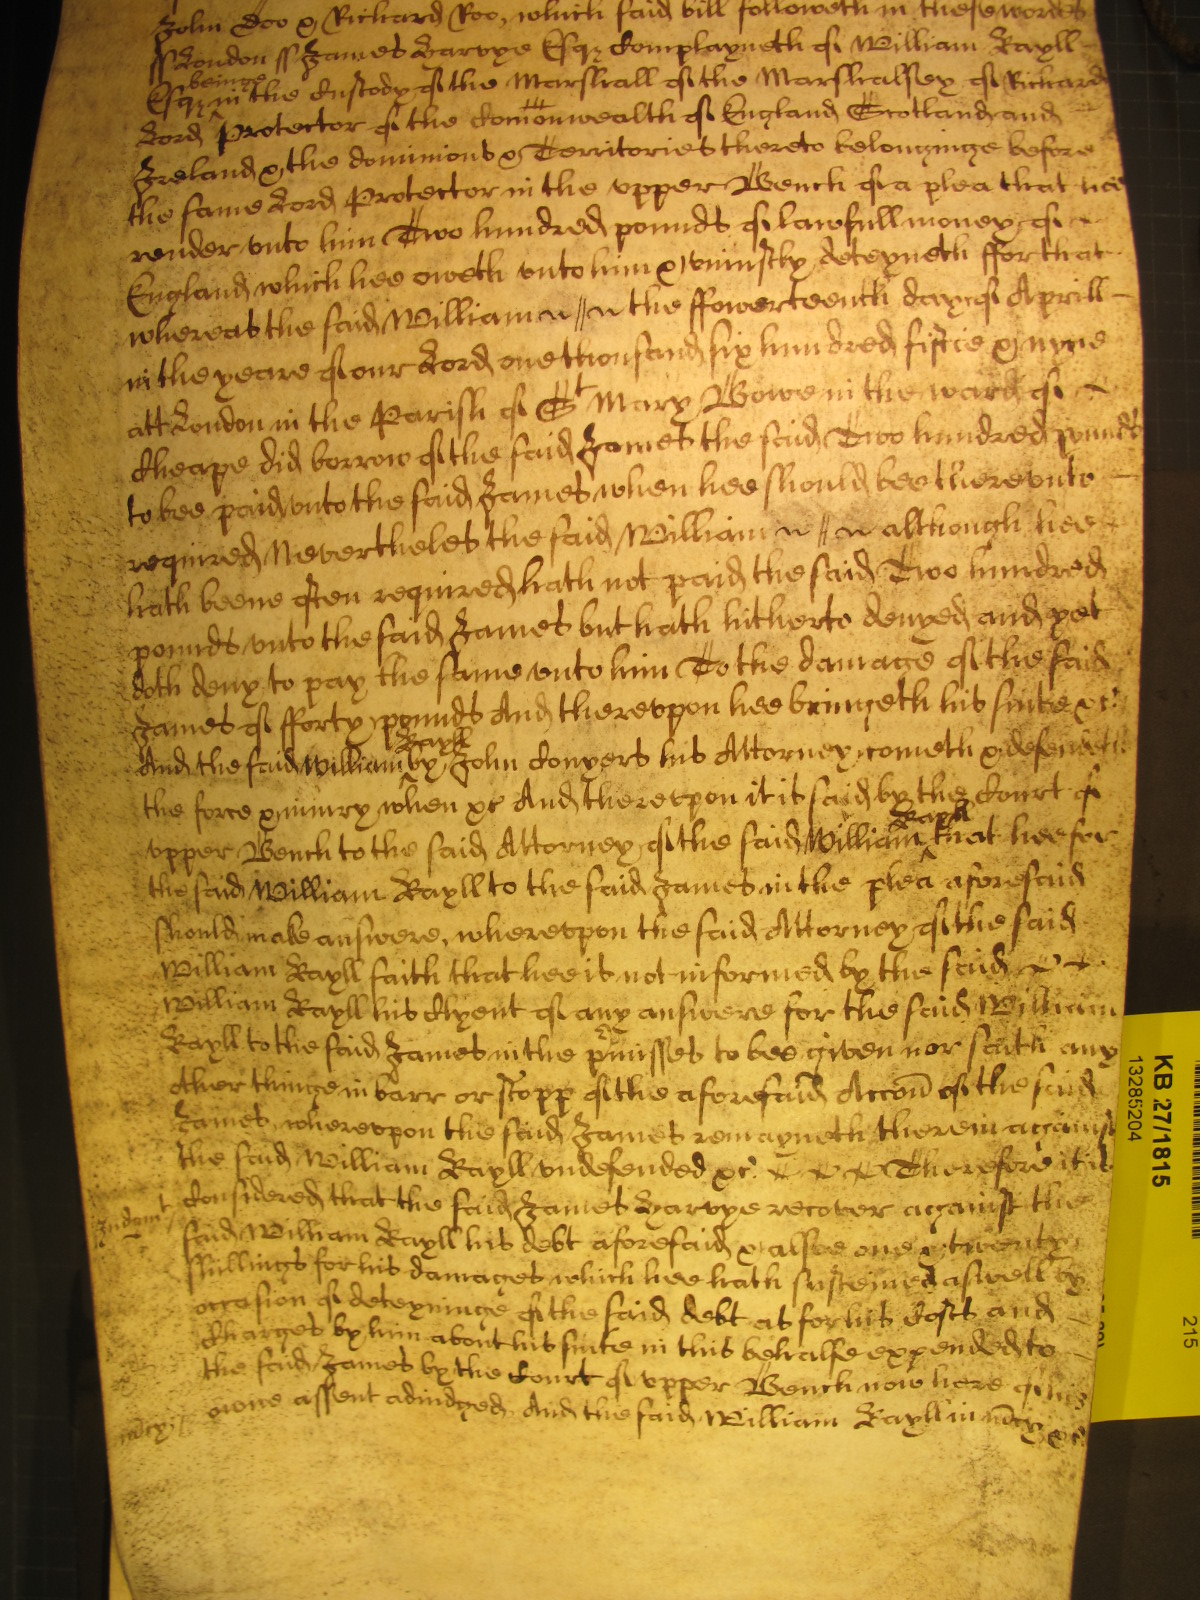 John Doo & Richard Roo, which said bill followeth in these wordes
ss London ss James Harvye Esqr Complayneth of William Rayll
Esqr beinge in the Custody of the Marshall of the Marshalsey of Richard
Lord Protector of the Comonwealth of England Scotland and
Ireland & the dominions & Territories thereto belonginge before
the same Lord Protector in the vpper Bench of a plea that hee
render vnto him Two hundred pounds of lawfull money of
England which hee oweth vnto him & vniustly deteyneth ffor that
whereas the said William the ffowerteenth day of Aprill
in the yeare of our Lord one thousand six hundred fiftie & nyne
att London in the Parish of St Mary Bowe in the ward of
Cheape did borrow of the said James the said Two hundred pounds
to bee paid vnto the said James when hee should bee therevnto
required Nevertheles the said William although hee
hath beene often required hath not paid the said Two hundred
pounds vnto the said James but hath hitherto denyed and yet
doth deny to pay the same vnto him To the damage of the said
James of fforty pounds And therevpon hee bringeth his suite &c
And the said William Rayll by John Conyers his Attorney cometh & defendeth
the force & iniury when &c And therevpon it is said by the Court of
vpper Bench to the said Attorney of the said William Rayll that hee for
the said William Rayll to the said James in the plea aforesaid
should make answere, wherevpon the said Attorney of the said
William Rayll saith that hee is not informed by the said
William Rayll his Clyent of any answere for the said William
Rayll to the said James in the pmisses to bee given nor saith any
other thinge in barr or stopp of the aforesaid Accon of the said
James, wherevpon the said James remayneth therein against
the said William Rayll vndefended &c. Therefore it is
Iudgmt Considered that the said James Harvye recover against the
said William Rayll his debt aforesaid & alsoe one & twenty
shillings for his damages which hee hath susteined aswell by
occasion of deteyninge of the said debt as for his Costs and
Charges by him about his suite in this behalfe expended to
the said James by the Court of vpper Bench now here of his
mcy owne assent adiudged And the said William Rayll in mcy &c
KB 27/1815
13285204
215